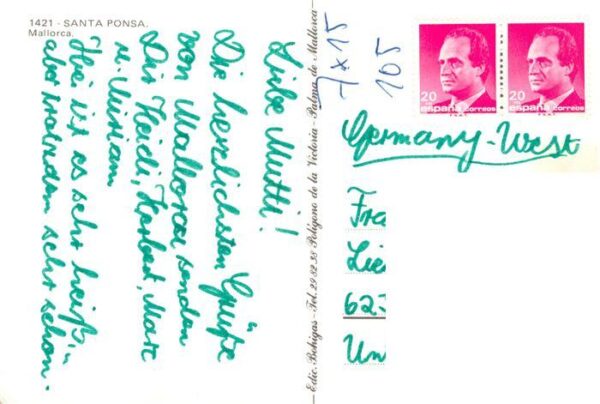 1421 - SANTA PONSA.
Mallorca.
Liebe Mutti!
Die herzlichsten Grüße
von Mallorca senden
Dir Heidi, Herbert, Marc
u. Miriam
Hier ist es sehr heiß,
aber trotzdem sehr schön.
Edic. Bohigas - Tel. 29 82 38 Polígono de la Victoria - Palma de Mallorca
7 x 15
105
20
españa correos
20
españa correos
Germany-West
Fra
Lie
62
Un